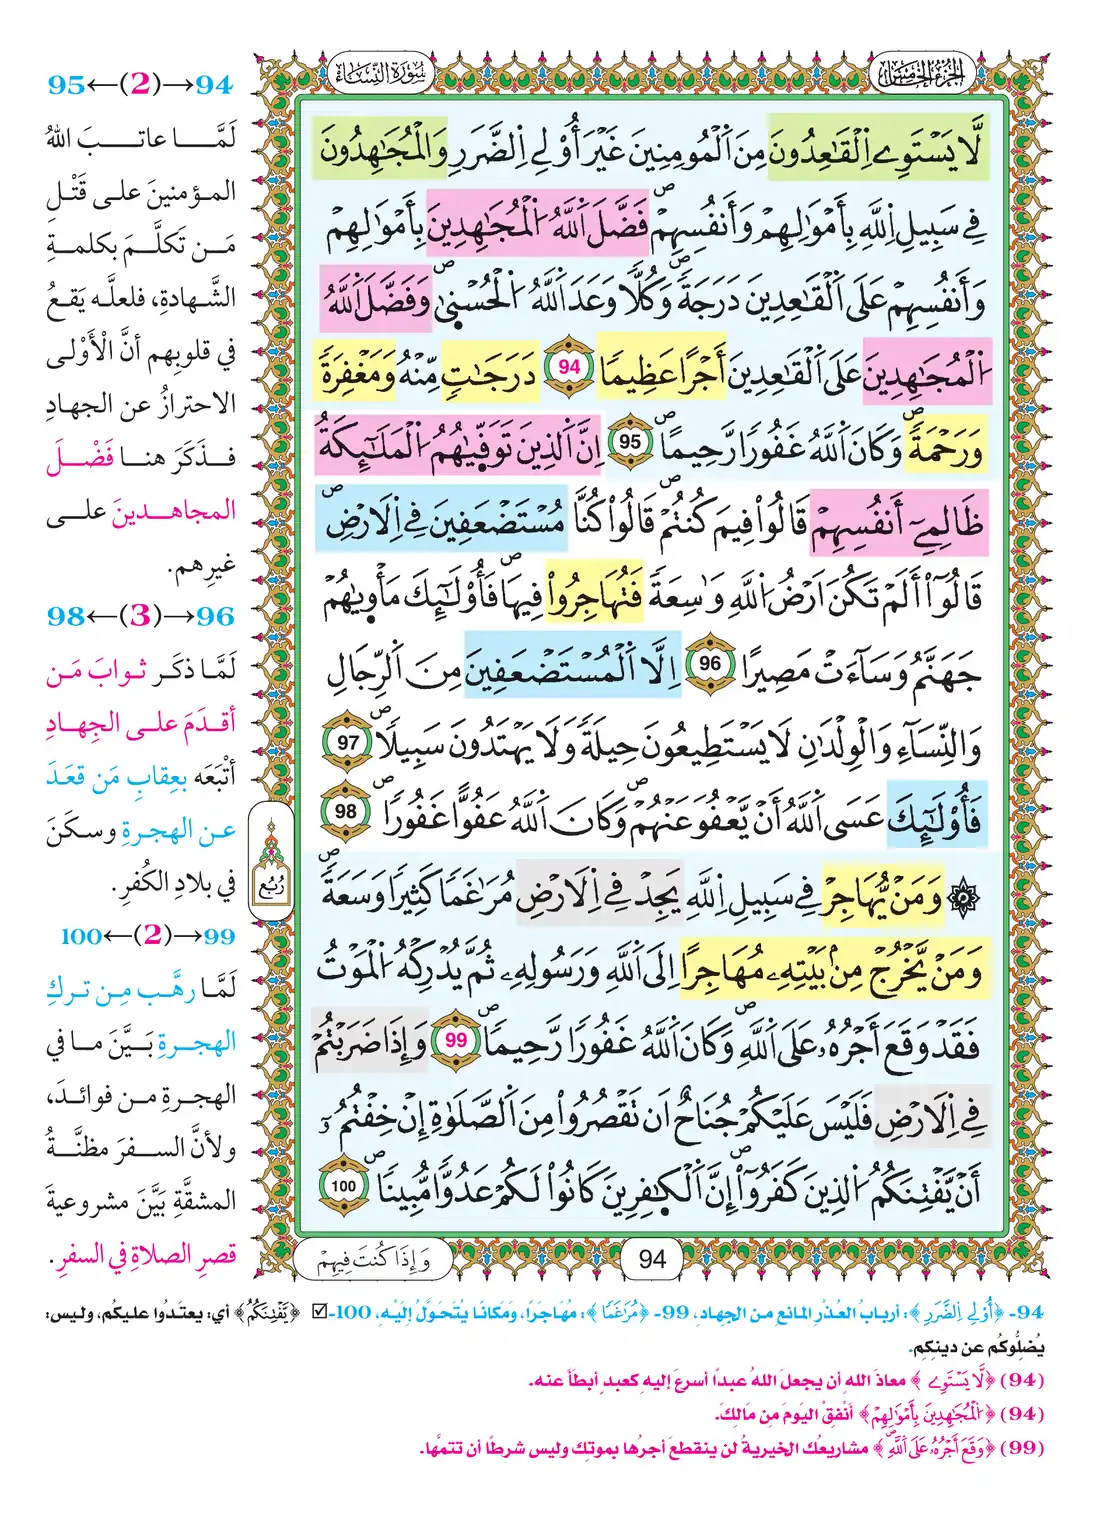 الجزء الخامس
سورة النساء
لَّا يَسْتَوِے اِ۬لْقَٰعِدُونَ مِنَ اَ۬لْمُومِنِينَ غَيْرَ أُوْلِے اِ۬لضَّرَرِ وَالْمُجَٰهِدُونَ
فِے سَبِيلِ اِ۬للَّهِ بِأَمْوَٰلِهِمْ وَأَنفُسِهِمْۖ فَضَّلَ اَ۬للَّهُ اُ۬لْمُجَٰهِدِينَ بِأَمْوَٰلِهِمْ
وَأَنفُسِهِمْ عَلَى اَ۬لْقَٰعِدِينَ دَرَجَةٗۖ وَكُلّاٗ وَعَدَ اَ۬للَّهُ اُ۬لْحُسْن۪يٰۖ وَفَضَّلَ اَ۬للَّهُ
اُ۬لْمُجَٰهِدِينَ عَلَى اَ۬لْقَٰعِدِينَ أَجْراً عَظِيماٗ 94 دَرَجَٰتٖ مِّنْهُ وَمَغْفِرَةٗ
وَرَحْمَةٗۖ وَكَانَ اَ۬للَّهُ غَفُوراٗ رَّحِيماًۖ 95 اِنَّ اَ۬لذِينَ تَوَفّ۪يٰهُمُ اُ۬لْمَلَٰٓئِكَةُ
ظَالِمِےٓ أَنفُسِهِمْ قَالُواْ فِيمَ كُنتُمْۖ قَالُواْ كُنَّا مُسْتَضْعَفِينَ فِے اِ۬لَارْضِۖ
قَالُوٓاْ أَلَمْ تَكُنَ اَرْضُ اُ۬للَّهِ وَٰسِعَةٗ فَتُهَاجِرُواْ فِيهَاۖ فَأُوْلَٰٓئِكَ مَأْو۪يٰهُمْ
جَهَنَّمُ وَسَآءَتْ مَصِيراً 96 اِلَّا اَ۬لْمُسْتَضْعَفِينَ مِنَ اَ۬لرِّجَالِ
وَالنِّسَآءِ وَالْوِلْدَٰنِ لَا يَسْتَطِيعُونَ حِيلَةٗ وَلَا يَهْتَدُونَ سَبِيلاٗۖ 97
فَأُوْلَٰٓئِكَ عَسَى اَ۬للَّهُ أَنْ يَّعْفُوَ عَنْهُمْۖ وَكَانَ اَ۬للَّهُ عَفُوّاً غَفُوراٗۖ 98
۞ وَمَنْ يُّهَاجِرْ فِے سَبِيلِ اِ۬للَّهِ يَجِدْ فِے اِ۬لَارْضِ مُرَٰغَماٗ كَثِيراٗ وَسَعَةٗۖ
رُبُع
وَمَنْ يَّخْرُجْ مِنۢ بَيْتِهِۦ مُهَاجِراً اِلَى اَ۬للَّهِ وَرَسُولِهِۦ ثُمَّ يُدْرِكْهُ اُ۬لْمَوْتُ
فَقَدْ وَقَعَ أَجْرُهُۥ عَلَى اَ۬للَّهِۖ وَكَانَ اَ۬للَّهُ غَفُوراٗ رَّحِيماٗۖ 99 وَإِذَا ضَرَبْتُمْ
فِے اِ۬لَارْضِ فَلَيْسَ عَلَيْكُمْ جُنَاحٌ اَن تَقْصُرُواْ مِنَ اَ۬لصَّلَوٰةِ إِنْ خِفْتُمُۥٓ
أَنْ يَّفْتِنَكُمُ اُ۬لذِينَ كَفَرُوٓاْۖ إِنَّ اَ۬لْكٰ۪فِرِينَ كَانُواْ لَكُمْ عَدُوّاٗ مُّبِيناٗۖ 100
94
وَإِذَا كُنتَ فِيهِمْ
94→(2)←95
لَمَّا عاتبَ اللهُ
المؤمنينَ على قَتْلِ
مَن تَكلَّمَ بكلمةِ
الشَّهادةِ، فلعلَّه يَقعُ
في قلوبِهم أنَّ الْأَوْلى
الاحترازُ عن الجهادِ
فذَكَرَ هنا فَضْلَ
المجاهدينَ على
غيرِهم.
96→(3)←98
لَمَّا ذكَر ثوابَ مَن
أقدَمَ على الجِهادِ
أتْبَعَه بعِقابِ مَن قعَدَ
عن الهجرةِ وسكَنَ
في بلادِ الكُفرِ.
99→(2)←100
لَمَّا رهَّب مِن تركِ
الهجرةِ بَيَّنَ ما في
الهجرةِ من فوائدَ،
ولأنَّ السفرَ مظنَّةُ
المشقَّةِ بَيَّنَ مشروعيةَ
قصرِ الصلاةِ في السفرِ.
94- ﴿أُوْلِے اِ۬لضَّرَرِ﴾: أربابُ العُذْرِ المانعِ من الجهادِ، 99- ﴿مُرَٰغَماٗ﴾: مُهَاجَرًا، وَمَكانًا يُتَحَوَّلُ إلَيْهِ، 100- ☑ ﴿يَّفْتِنَكُمُ﴾ أي: يعتَدُوا عليكُم، وليس:
يُضِلُّوكُم عن دينِكِم.
(94) ﴿لَّا يَسْتَوِے﴾ معاذَ اللهِ أن يجعلَ اللهُ عبداً أسرعَ إليهِ كعبدٍ أبطأَ عنه.
(94) ﴿اُ۬لْمُجَٰهِدِينَ بِأَمْوَٰلِهِمْ﴾ أنْفِقْ اليومَ مِن مَالِكَ.
(99) ﴿وَقَعَ أَجْرُهُۥ عَلَى اَ۬للَّهِۖ﴾ مشاريعُك الخيريةُ لن ينقطعَ أجرُها بموتِك وليس شرطًا أن تتمَّها.